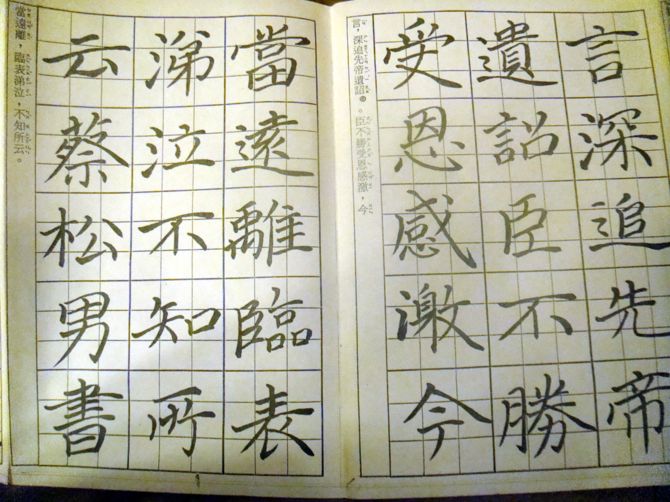 言深追先帝
遺詔臣不勝
受恩感激今
言,深追先帝遺詔。臣不勝受恩感激,今
當遠離臨表
涕泣不知所
云蔡松男書
當遠離,臨表涕泣,不知所云。